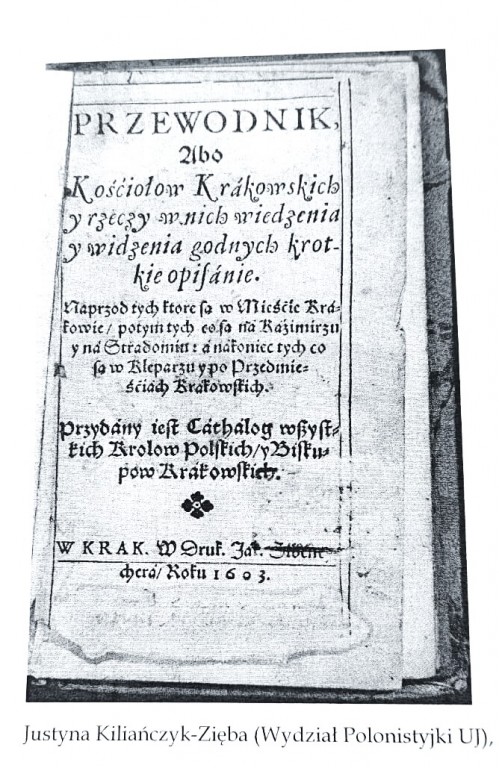 PRZEWODNIK,
Abo
Kośćiołow Krákowskich
y rzeczy w nich wiedzenia
y widzenia godnych krot-
kie opisánie.
Naprzod tych ktore są w Mieśćie Krá-
kowie/ potym tych co są ná Kaźimirzu
y ná Strádomiu: á nákoniec tych co
są w Kleparzu y po Przedmie-
śćiách Krákowskich.
Przydány iest Cáthálog wßyst-
kich Krolow Polskich/ y Bisku-
pow Krákowskich.
W KRAK. W Druk. Jak.
cherá/ Roku 1603.
Justyna Kiliańczyk-Zięba (Wydział Polonistyjki UJ),